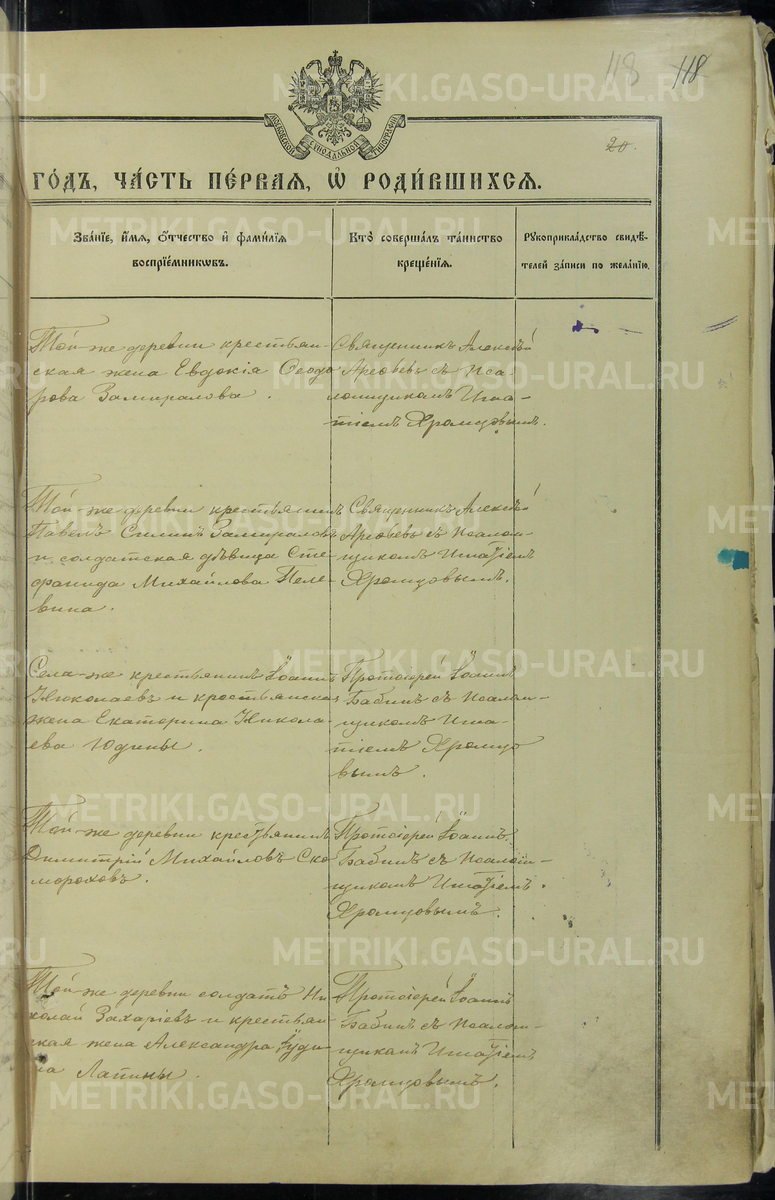 118 118
МОСКОВСКОЙ СИНОДАЛЬНОЙ ТИПОГРАФІИ
20.
ГО́ДЪ, ЧА́СТЬ ПЕ́РВАЯ, Ѡ҆ РОДИ́ВШИХСЯ.
Зва́нїе, и҆́мя, ѻ҆́тчество и҆ фами́лїя
воспрїе́мникѡвъ.
Кто̀ соверша́лъ та́инство
креще́нїя.
Рꙋкоприкла́дство свидѣ́-
телей за́писи по жела́нїю.
Той-же деревни крестьян-
ская жена Евдокія Ѳеодо
рова Замиралова.
Священникъ Алексѣй
Арефьевъ съ Псa-
ломщикомъ Игна-
тіемъ Хромцовымъ.
Той-же деревни крестьянинъ
Павелъ Силинъ Замираловъ
и солдатская дѣвица Сте
фанида Михайлова Пеле-
вина.
Священникъ Алексѣй
Арефьевъ съ Псалом-
щикомъ Игнатіемъ
Хромцовымъ.
Села-же крестьянинъ Іоаннъ
Николаевъ и крестьянская
жена Екатерина Никола
ева Юдины.
Протоіерей Іоаннъ
Бабинъ съ Псалом-
щикомъ Игна-
тіемъ Хромцо
вымъ.
Той-же деревни крестьянинъ
Димитрій Михайловъ Ско
мороховъ.
Протоіерей Іоаннъ
Бабинъ съ Псалом-
щикомъ Игнатіемъ
Хромцовымъ.
Той-же деревни солдатъ Ни
колай Захаріевъ и крестьян-
ская жена Александра Іуди
на Лапины.
Протоіерей Іоаннъ
Бабинъ съ Псалом-
щикомъ Игнатіемъ
Хромцовымъ.
METRIKI.GASO-URAL.RU